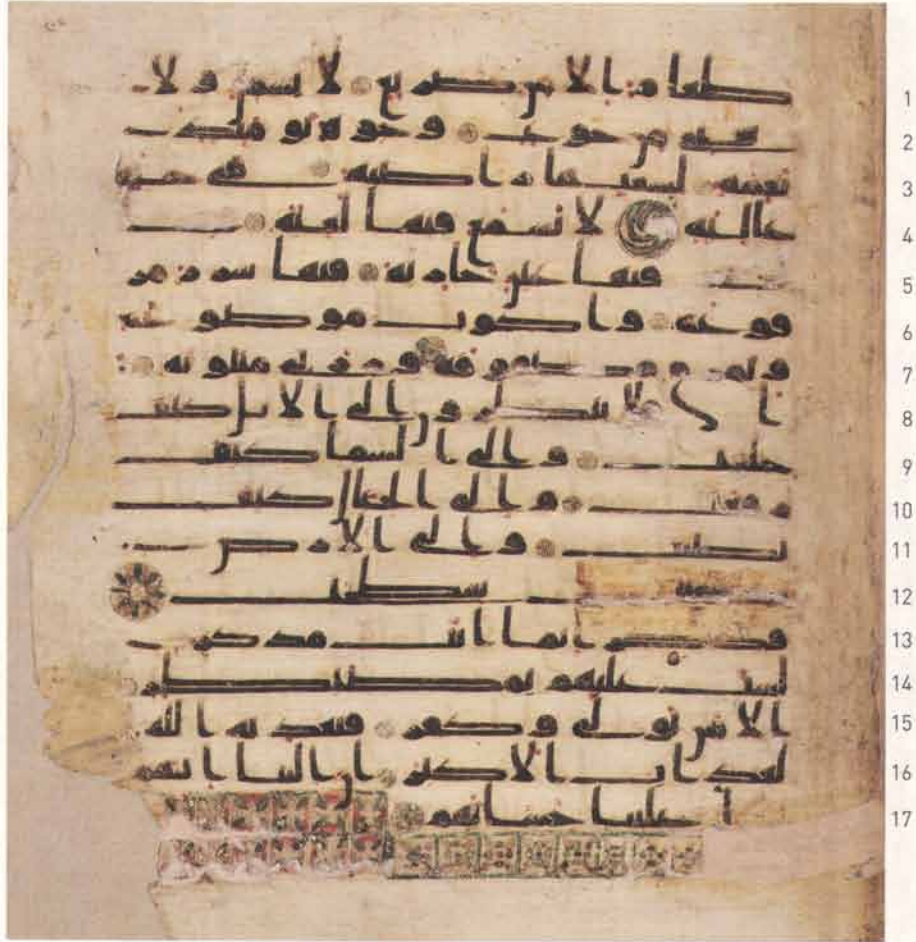 طعام الا من ضريع لا يسمن ولا 1
يغني من جوع وجوه يومئذ 2
ناعمة لسعيها راضية في جنة 3
عالية لا تسمع فيها لغية 4
فيها عين جارية فيها سرر مر 5
فوعة واكواب موضوعة 6
ونمرق مصفوفة وزربي مبثوثة 7
افلا ينظرون الى الابل كيف 8
خلقت والى السما كيف 9
رفعت والى الجبال كيف 10
نصبت والى الارض 11
كيف سطحت 12
فذكر انما انت مذكر 13
لست عليهم بمصيطر 14
الا من تولى وكفر فيعذبه الله 15
العذاب الاكبر ان الينا ايابهم 16
علينا حسابهم 17